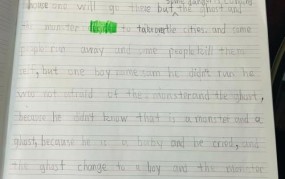 one will go there but the ghost and
the monster to take over the cities and some
people run away and some people kill them
self, but one boy he didn't run, he
was not afraid of the monster and the ghost,
because he didn't know that is a monster and a
ghost, because he is a baby and he cried, and
the ghost change to a boy and the monster